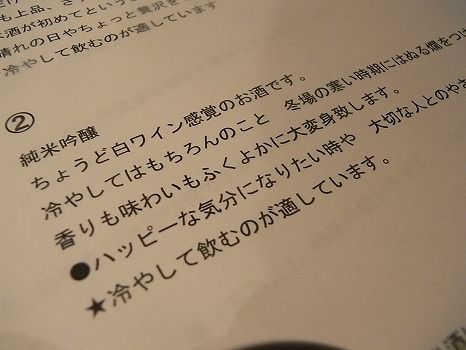 も上品、さ
酒が初めてという
晴れの日やちょっと贅沢を
冷やして飲むのが適しています
②
純米吟醸
ちょうど白ワイン感覚のお酒です。
冷やしてはもちろんのこと 冬場の寒い時期にはぬる燗をつけ
香りも味わいもふくよかに大変身致します。
●ハッピーな気分になりたい時や 大切な人とのやさ
★冷やして飲むのが適しています。